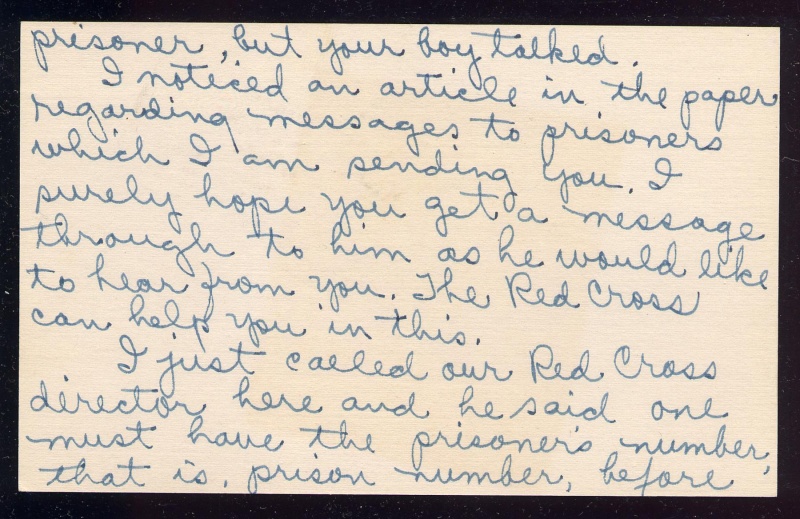 prisoner, but your boy talked.
I noticed an article in the paper
regarding messages to prisoners
which I am sending you. I
surely hope you get a message
through to him as he would like
to hear from you. The Red Cross
can help you in this.
I just called our Red Cross
director here and he said one
must have the prisoner's number,
that is, prison number, before